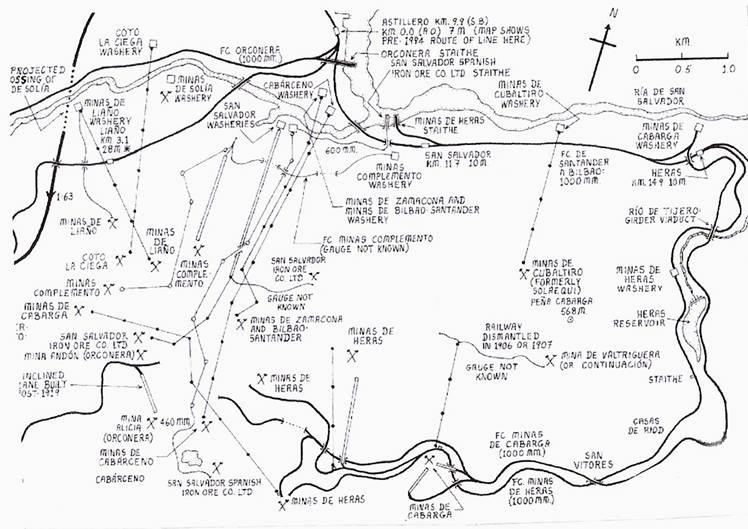 ASTILLERO KM. 9.9 (S.B)
KM. 0.0 (A.O) 7 M (MAP SHOWS
PRE-1994 ROUTE OF LINE HERE)
ORCONERA STAITHE
SAN SALVADOR SPANISH
IRON ORE CO. LTD STAITHE
N
KM.
0 0.5 1.0
COTO
LA CIEGA
WASHERY
FC ORCONERA
(1000 MM.)
PROJECTED
OSSING OF
DE SOLÍA
MINAS
DE SOLÍA
WASHERY
CABÁRCENO
WASHERY
MINAS DE
CUBALTIRO
WASHERY
RÍA DE SAN
SALVADOR
MINAS DE
LIAÑO
WASHERY
LIAÑO
KM 3.1
28M
SAN
SALVADOR
WASHERIES
MINAS DE HERAS
STAITHE
MINAS DE
CABARGA
WASHERY
600 MM.
SAN SALVADOR
KM. 11.7 10 M
FC DE
SANTANDER
A BILBAO-
1000 MM.
HERAS
KM. 14.9 10 M.
MINAS
COMPLEMENTO
WASHERY
1:63
MINAS DE ZAMACONA AND
MINAS DE BILBAO-SANTANDER
WASHERY
MINAS DE
LIAÑO
MINAS
DE
LIAÑO
FC MINAS COMPLEMENTO
(GAUGE NOT KNOWN)
RÍO DE TIJERO
GIRDER VIADUCT
COTO
LA CIEGA
MINAS
COMPLE-
MENTO
SAN SALVADOR
IRON ORE
CO. LTD
MINAS DE
CUBALTIRO
(FORMERLY
SOLAEQUI)
PEÑA CABARGA
568 M.
MINAS DE
HERAS
WASHERY
MINAS
COMPLEMENTO
GAUGE NOT
KNOWN
MINAS DE
CABARGA
MINAS DE ZAMACONA
AND BILBAO-
SANTANDER
MINAS DE
HERAS
RAILWAY
DISMANTLED
IN 1906 OR 1907
HERAS
RESERVOIR
SAN SALVADOR
IRON ORE CO. LTD
MINA ANDÓN (ORCONERA)
GAUGE NOT
KNOWN
MINA DE VALTRIGUERA
(OR CONTINUACIÓN)
INCLINED
LANE BUILT
POST-1919
MINAS DE
HERAS
STAITHE
MINA
ALICIA
(ORCONERA)
460 MM.
CASAS
DE RIOD
MINAS DE
CABÁRCENO
FC MINAS
DE CABARGA
(1000 MM.)
SAN
VITORES
CABÁRCENO
SAN SALVADOR SPANISH
IRON ORE CO. LTD
MINAS DE HERAS
MINAS DE
CABARGA
FC. MINAS
DE HERAS
(1000 MM.)